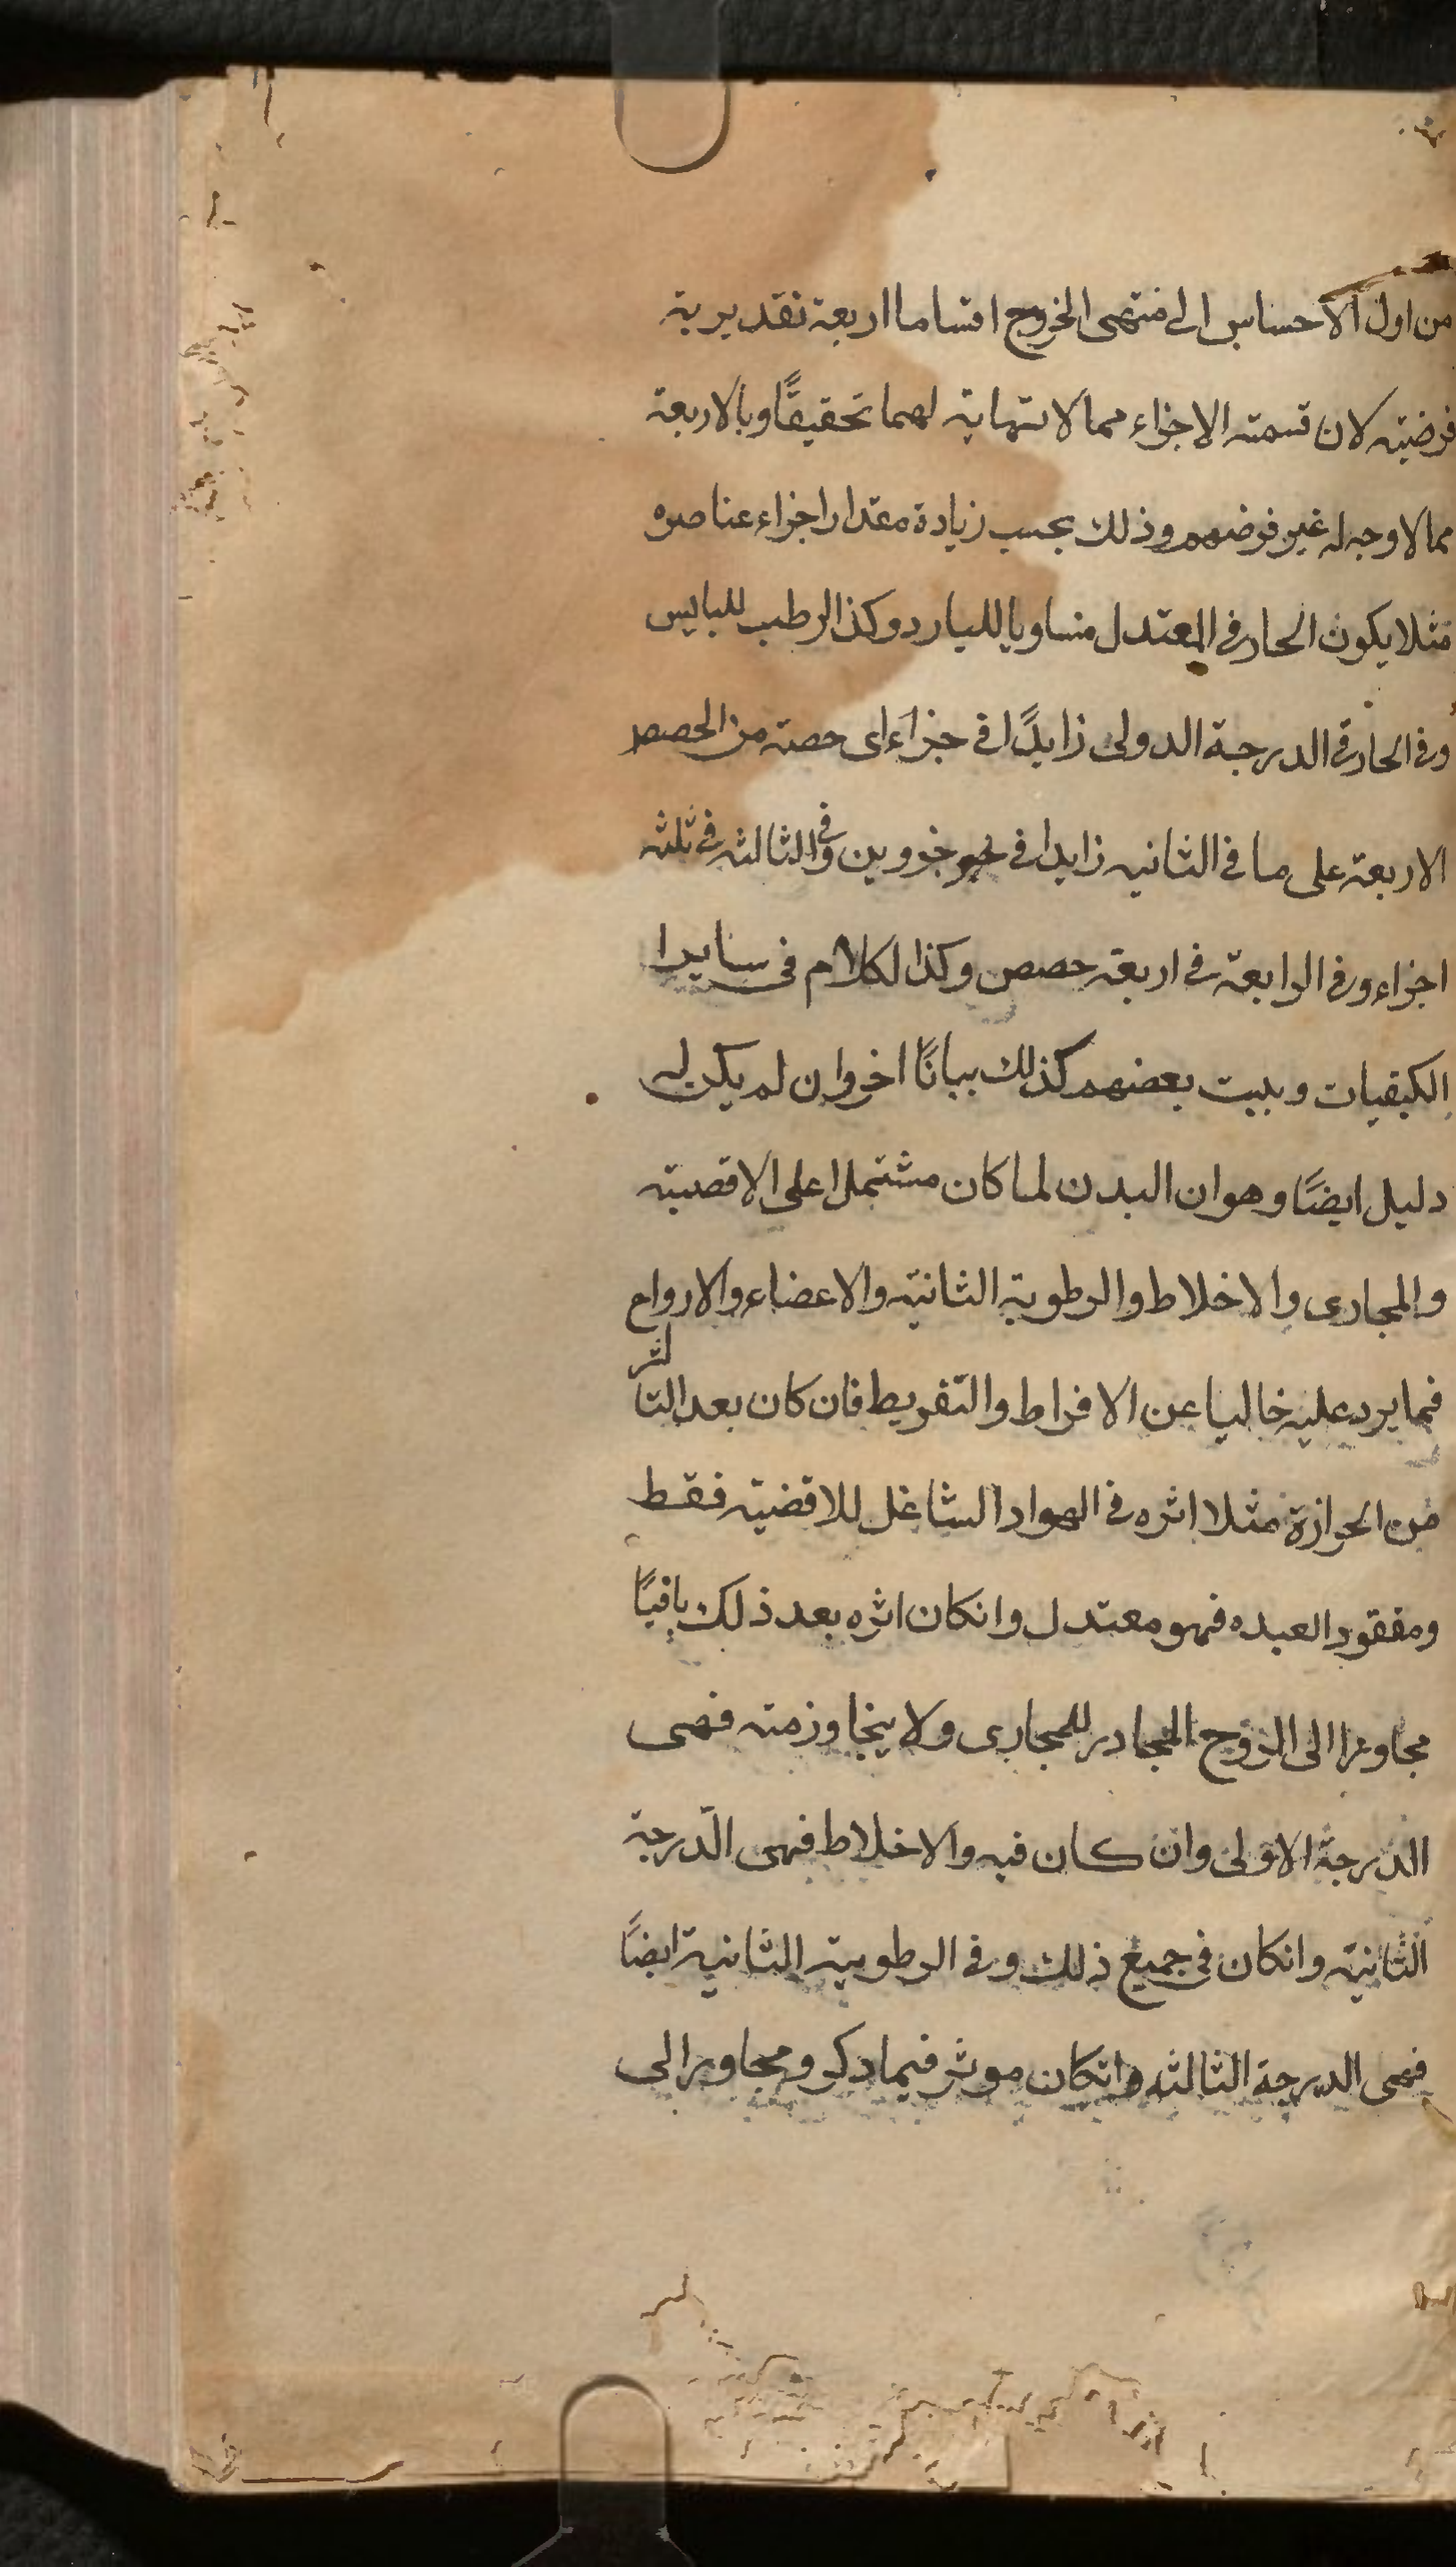 من اول الاحساس الى منتهى الخروج اقساما اربعة تقديرية
فرضيته لان قسمته الاجزاء مما لا نهاية لهما تحقيقًا وبالاربعة
مما لا وجه له غير فرضهم وذلك بحسب زيادة مقدار اجزاء عناصره
مثلا يكون الحار في المعتدل متساويا للبارد وكذا الرطب لليابس
وفي الحار في الدرجة الدولى زايدًا في جزاء اى حصته من الحصص
الاربعة على ما في الثانيه زايدا في نحو جزوين وفي الثالثه في ثلثه
اجزاء وفي الرابعة في اربعة حصص وكذا لكلام فى سايرا
الكيفيات وبيت بعضهم كذلك بيانًا اخر وان لم يكن له
دليل ايضًا وهو ان البدن لما كان مشتملا على الاقصيته
والمجارى والاخلاط والرطوبة الثانية والاعضاء والارواح
فما يرد عليه خاليا عن الافراط والتفريط فان كان بعد التاثر
من الحرازة مثلا اثره في الهواد الشاغل للاقضية فقط
ومفقود العبده فهو معتدل وانكان اثره بعد ذلك باقيًا
مجاوزا الى الروح المجادر للمجارى ولا يتجاوز منه فهى
الدرجة الاولى وان كان فيه والاخلاط فهى الدّرجة
الثانية وانكان فى جميع ذلك وفي الرطوبية الثانية ايضًا
فهى الدرجة الثالثه وانكان موثر فيما دكر ومجاوزا الى